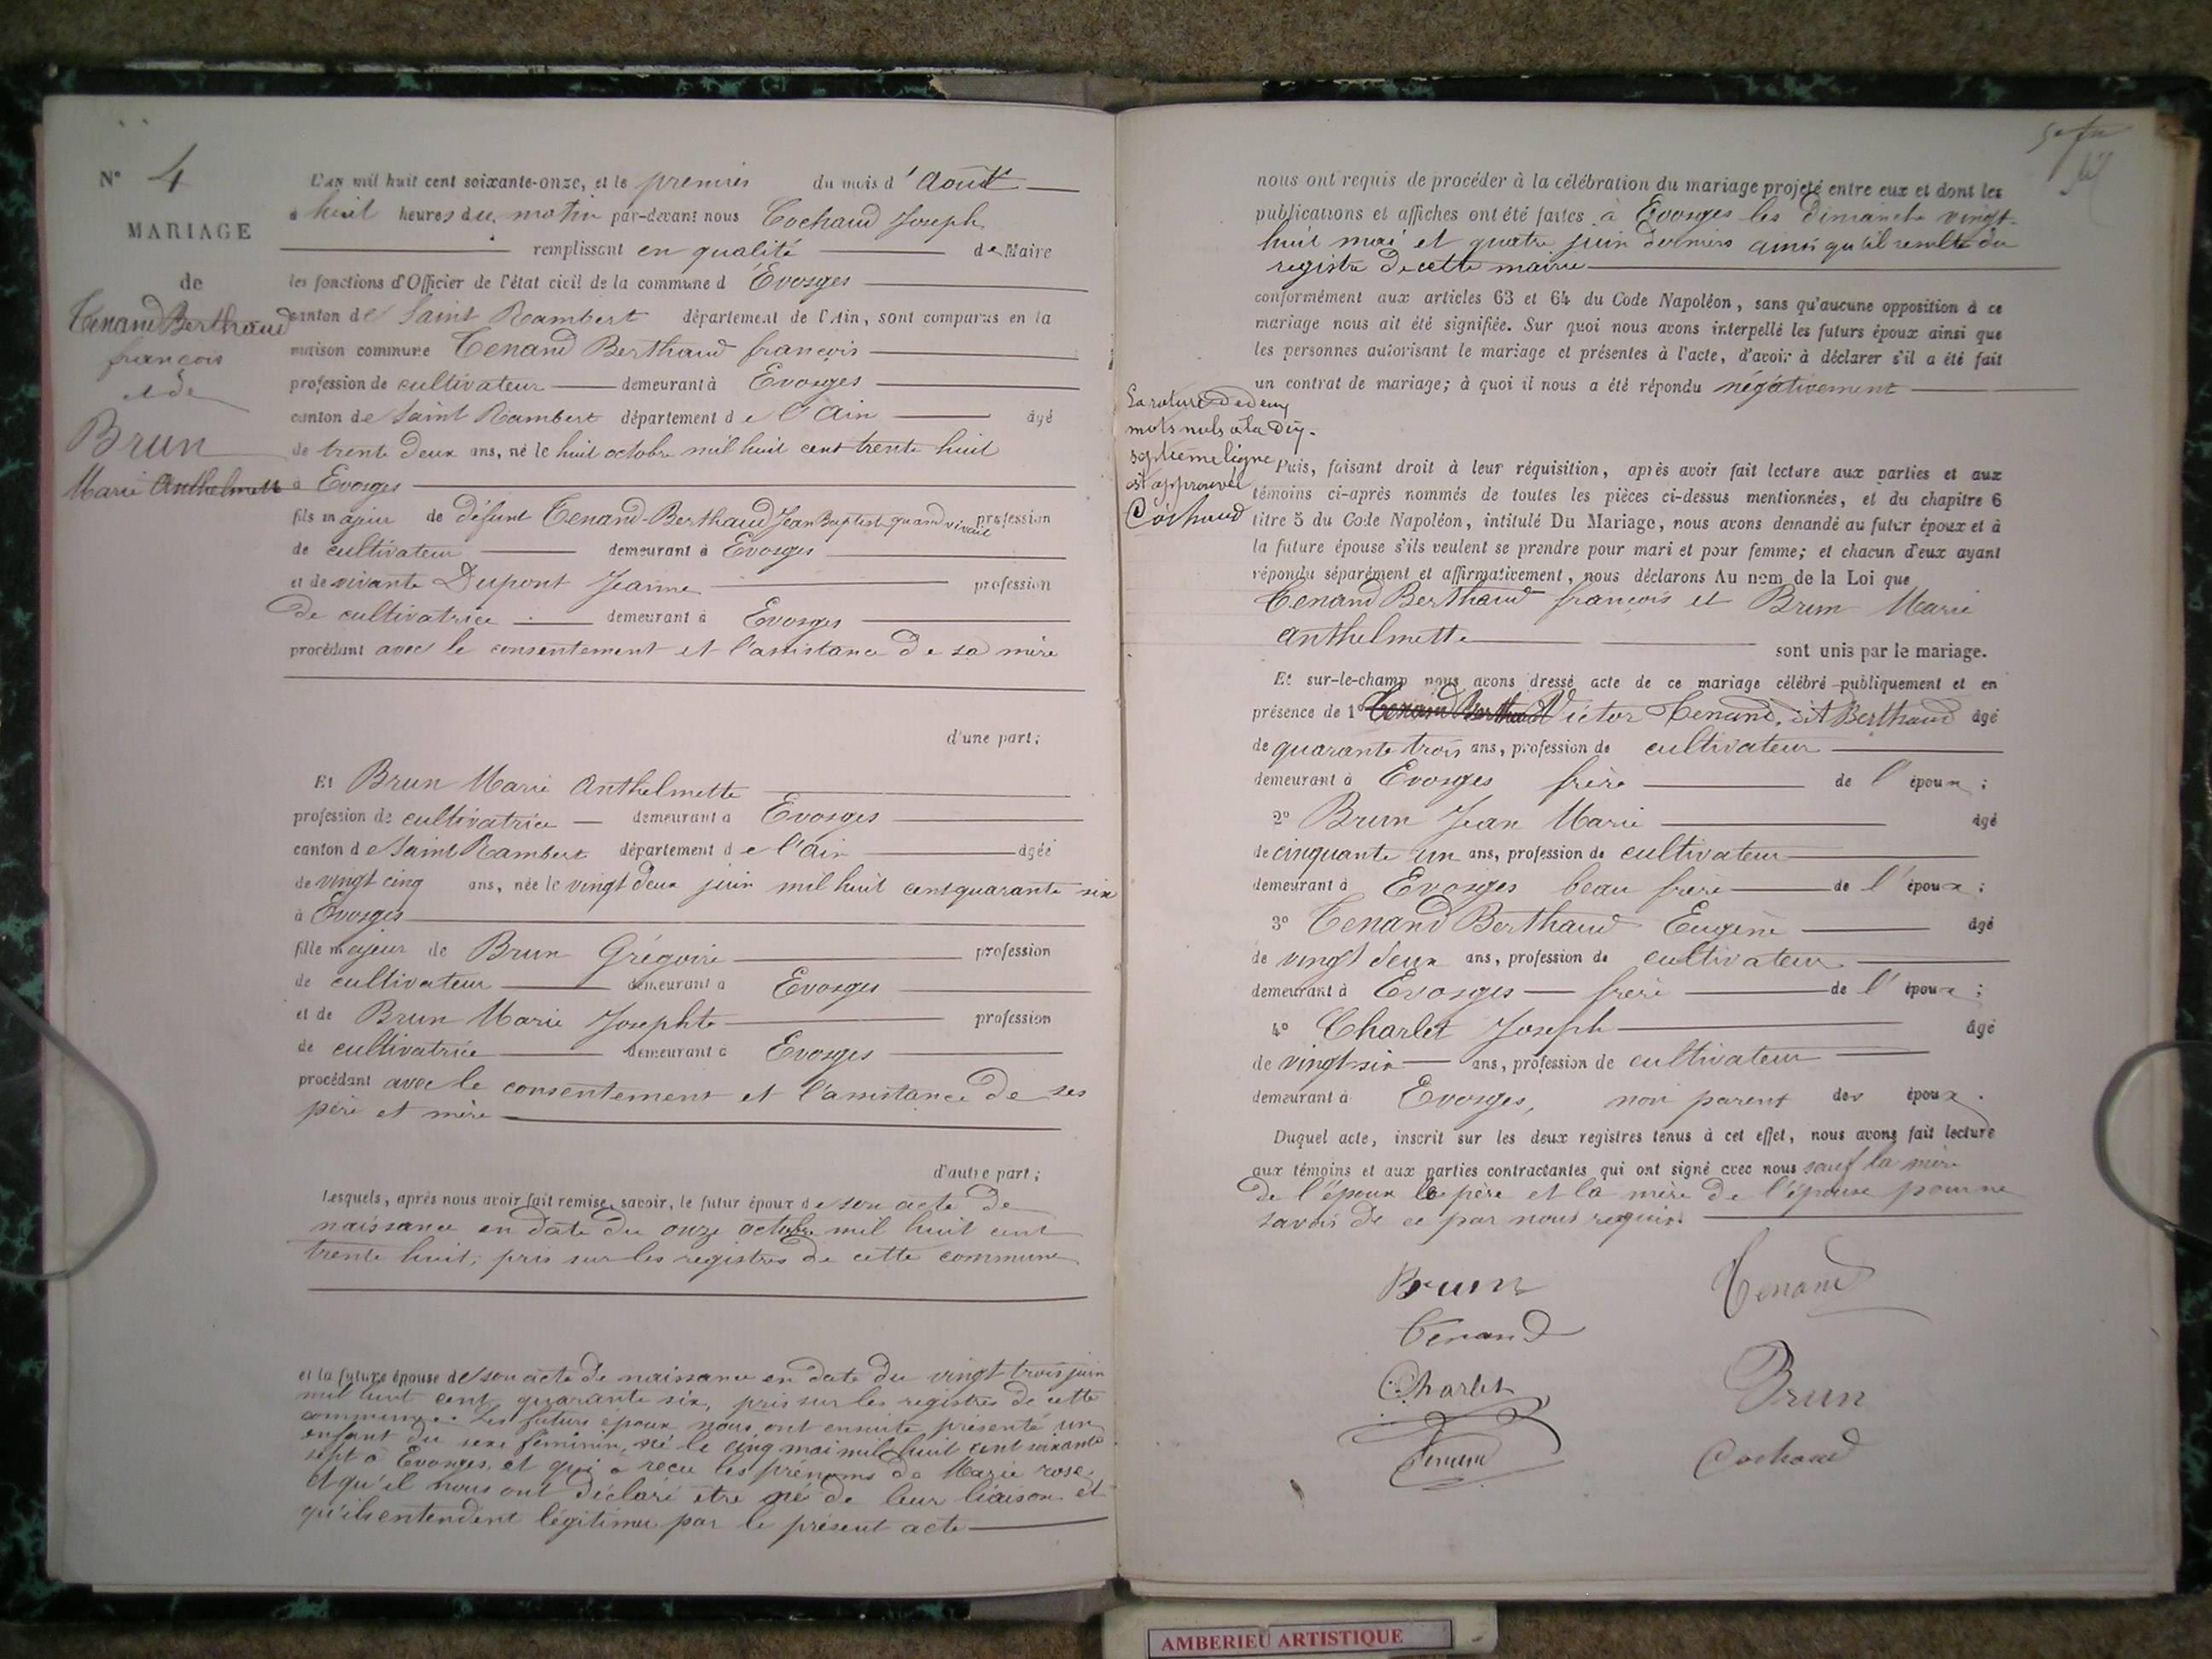 N° 4
MARIAGE
de
Tenand Berthaud
françois
et de
Brun
Marie Anthelmette
L'an mil huit cent soixante-onze, et le premier du mois d'Août
à huit heures du matin par-devant nous Cochaud Joseph
remplissant en qualité de Maire
les fonctions d'Officier de l'état civil de la commune d Evosges
canton de Saint Rambert département de l'Ain, sont comparus en la
maison commune Tenand Berthaud françois
profession de cultivateur demeurant à Evosges
canton de Saint Rambert département de l'Ain âgé
de trente deux ans, né le huit octobre mil huit cent trente huit
à Evosges
fils majeur de défunt Tenand-Berthaud Jean Baptist quand vivait profession
de cultivateur demeurant à Evosges
et de vivante Dupont Jeanne profession
de cultivatrice demeurant à Evosges
procédant avec le consentement et l'assistance de sa mère
d'une part;
Et Brun Marie Anthelmette
profession de cultivatrice demeurant à Evosges
canton de Saint Rambert département de l'Ain âgée
de vingt cinq ans, née le vingt deux juin mil huit cent quarante six
à Evosges
fille majeur de Brun Grégoire profession
de cultivateur demeurant à Evosges
et de Brun Marie Josephte profession
de cultivatrice demeurant à Evosges
procédant avec le consentement et l'assistance de ses
père et mère
d'autre part;
Lesquels, après nous avoir fait remise, savoir, le futur époux de son acte de
naissance en date du onze octobre mil huit cent
trente huit, pris sur les registres de cette commune
et la future épouse de son acte de naissance en date du vingt trois juin
mil huit cent quarante six, pris sur les registres de cette
commune. Les futurs époux nous ont ensuite présenté un
enfant du sexe féminin, né le cinq mai mil huit cent soixante
sept à Evosges, et qui a reçu les prénoms de Marie rose,
et qu'il nous ont déclaré être né de leur liaison et
qu'ils entendent légitimer par le présent acte
nous ont requis de procéder à la célébration du mariage projeté entre eux et dont les
publications et affiches ont été faites à Evosges les dimanche vingt-
huit mai et quatre juin derniers ainsi qu'il resulte du
registre de cette mairie
conformément aux articles 63 et 64 du Code Napoléon, sans qu'aucune opposition à ce
mariage nous ait été signifiée. Sur quoi nous avons interpellé les futurs époux ainsi que
les personnes autorisant le mariage et présentes à l'acte, d'avoir à déclarer s'il a été fait
un contrat de mariage; à quoi il nous a été répondu négativement
La rature de deux
mots nuls à la dix-
septieme ligne
est approuvée
Cochaud
Puis, faisant droit à leur réquisition, après avoir fait lecture aux parties et aux
témoins ci-après nommés de toutes les pièces ci-dessus mentionnées, et du chapitre 6
titre 5 du Code Napoléon, intitulé Du Mariage, nous avons demandé au futur époux et à
la future épouse s'ils veulent se prendre pour mari et pour femme; et chacun d'eux ayant
répondu séparément et affirmativement, nous déclarons Au nom de la Loi que
Tenand Berthaud françois et Brun Marie
anthelmette
sont unis par le mariage.
Et sur-le-champ nous avons dressé acte de ce mariage célébré publiquement et en
présence de 1° Tenand Berthaud Victor Tenand, dit Berthaud âgé
de quarante trois ans, profession de cultivateur
demeurant à Evosges frère de l'époux;
2° Brun Jean Marie âgé
de cinquante un ans, profession de cultivateur
demeurant à Evosges beau frère de l'époux;
3° Tenand Berthaud Eugène âgé
de vingt deux ans, profession de cultivateur
demeurant à Evosges frère de l'époux;
4° Charlet Joseph âgé
de vingt-six ans, profession de cultivateur
demeurant à Evosges, non parent des époux.
Duquel acte, inscrit sur les deux registres tenus à cet effet, nous avons fait lecture
aux témoins et aux parties contractantes qui ont signé avec nous sauf la mère
de l'époux le père et la mère de l'épouse pour ne
savoir de ce par nous requis.
Brun Tenand
Tenand
Charlet Brun
Tenand Cochaud
AMBERIEU ARTISTIQUE